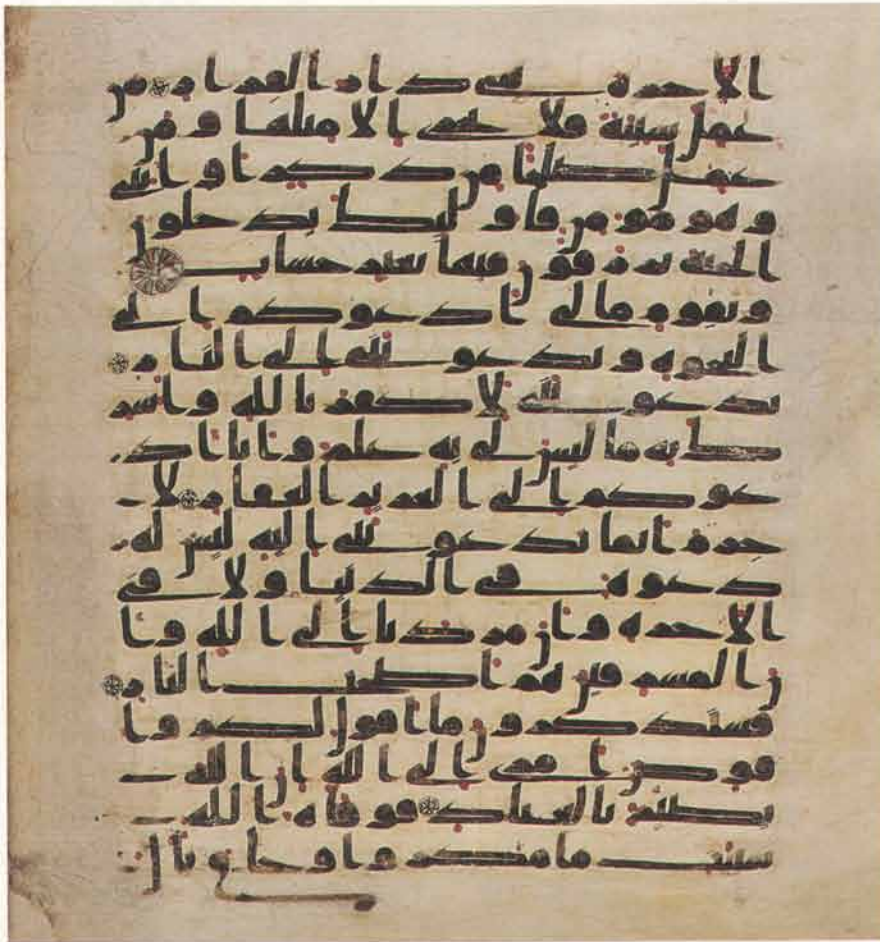 الاخرة هي دار القرار من
عمل سيئة فلا يجزى الا مثلها ومن
عمل صلحا من ذكر او انثى
وهو مومن فاولئك يدخلون
الجنة يرزقون فيها بغير حساب
ويقوم ما لي ادعوكم الى
النجوة وتدعونني الى النار
تدعونني لاكفر بالله واشر
ك به ما ليس لي به علم وانا اد
عوكم الى العزيز الغفار لا
جرم انما تدعونني اليه ليس له
دعوة في الدنيا ولا في
الاخرة وان مردنا الى الله وا
ن المسرفين هم اصحب النار
فستذكرون ما اقول لكم وا
فوض امري الى الله ان الله
بصير بالعباد فوقاه الله
سيئت ما مكروا وحاق بال